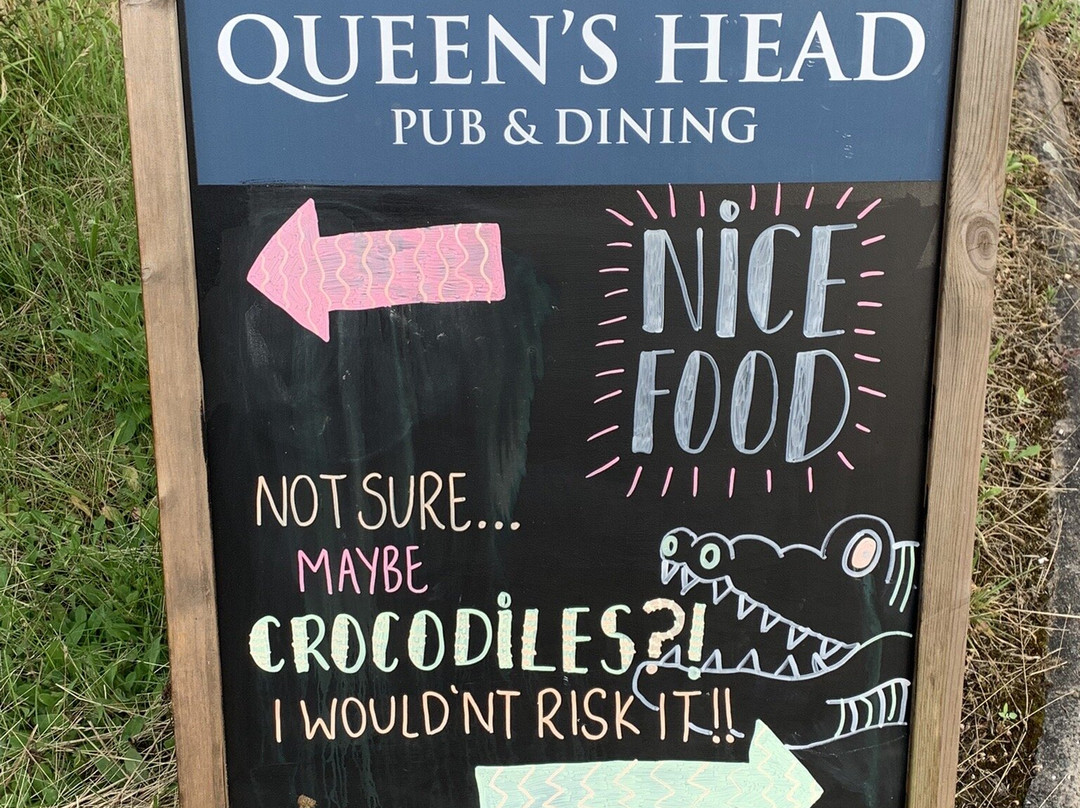 QUEEN'S HEAD
PUB & DINING
NiCE
FOOD
NOT SURE...
MAYBE
CROCODiLES?!
I WOULD'NT RISK IT!!